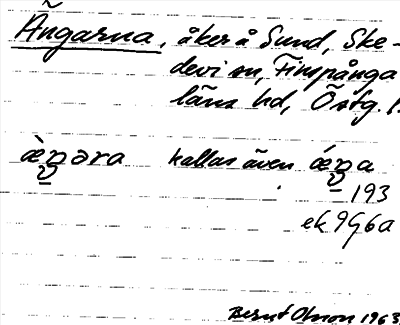 Ängarna, åker å Sund, Ske-
devi sn, Finspånga
läns hd, Östg. l.
kallas även
193
ek 9G6a
Bernt Olsson 1963